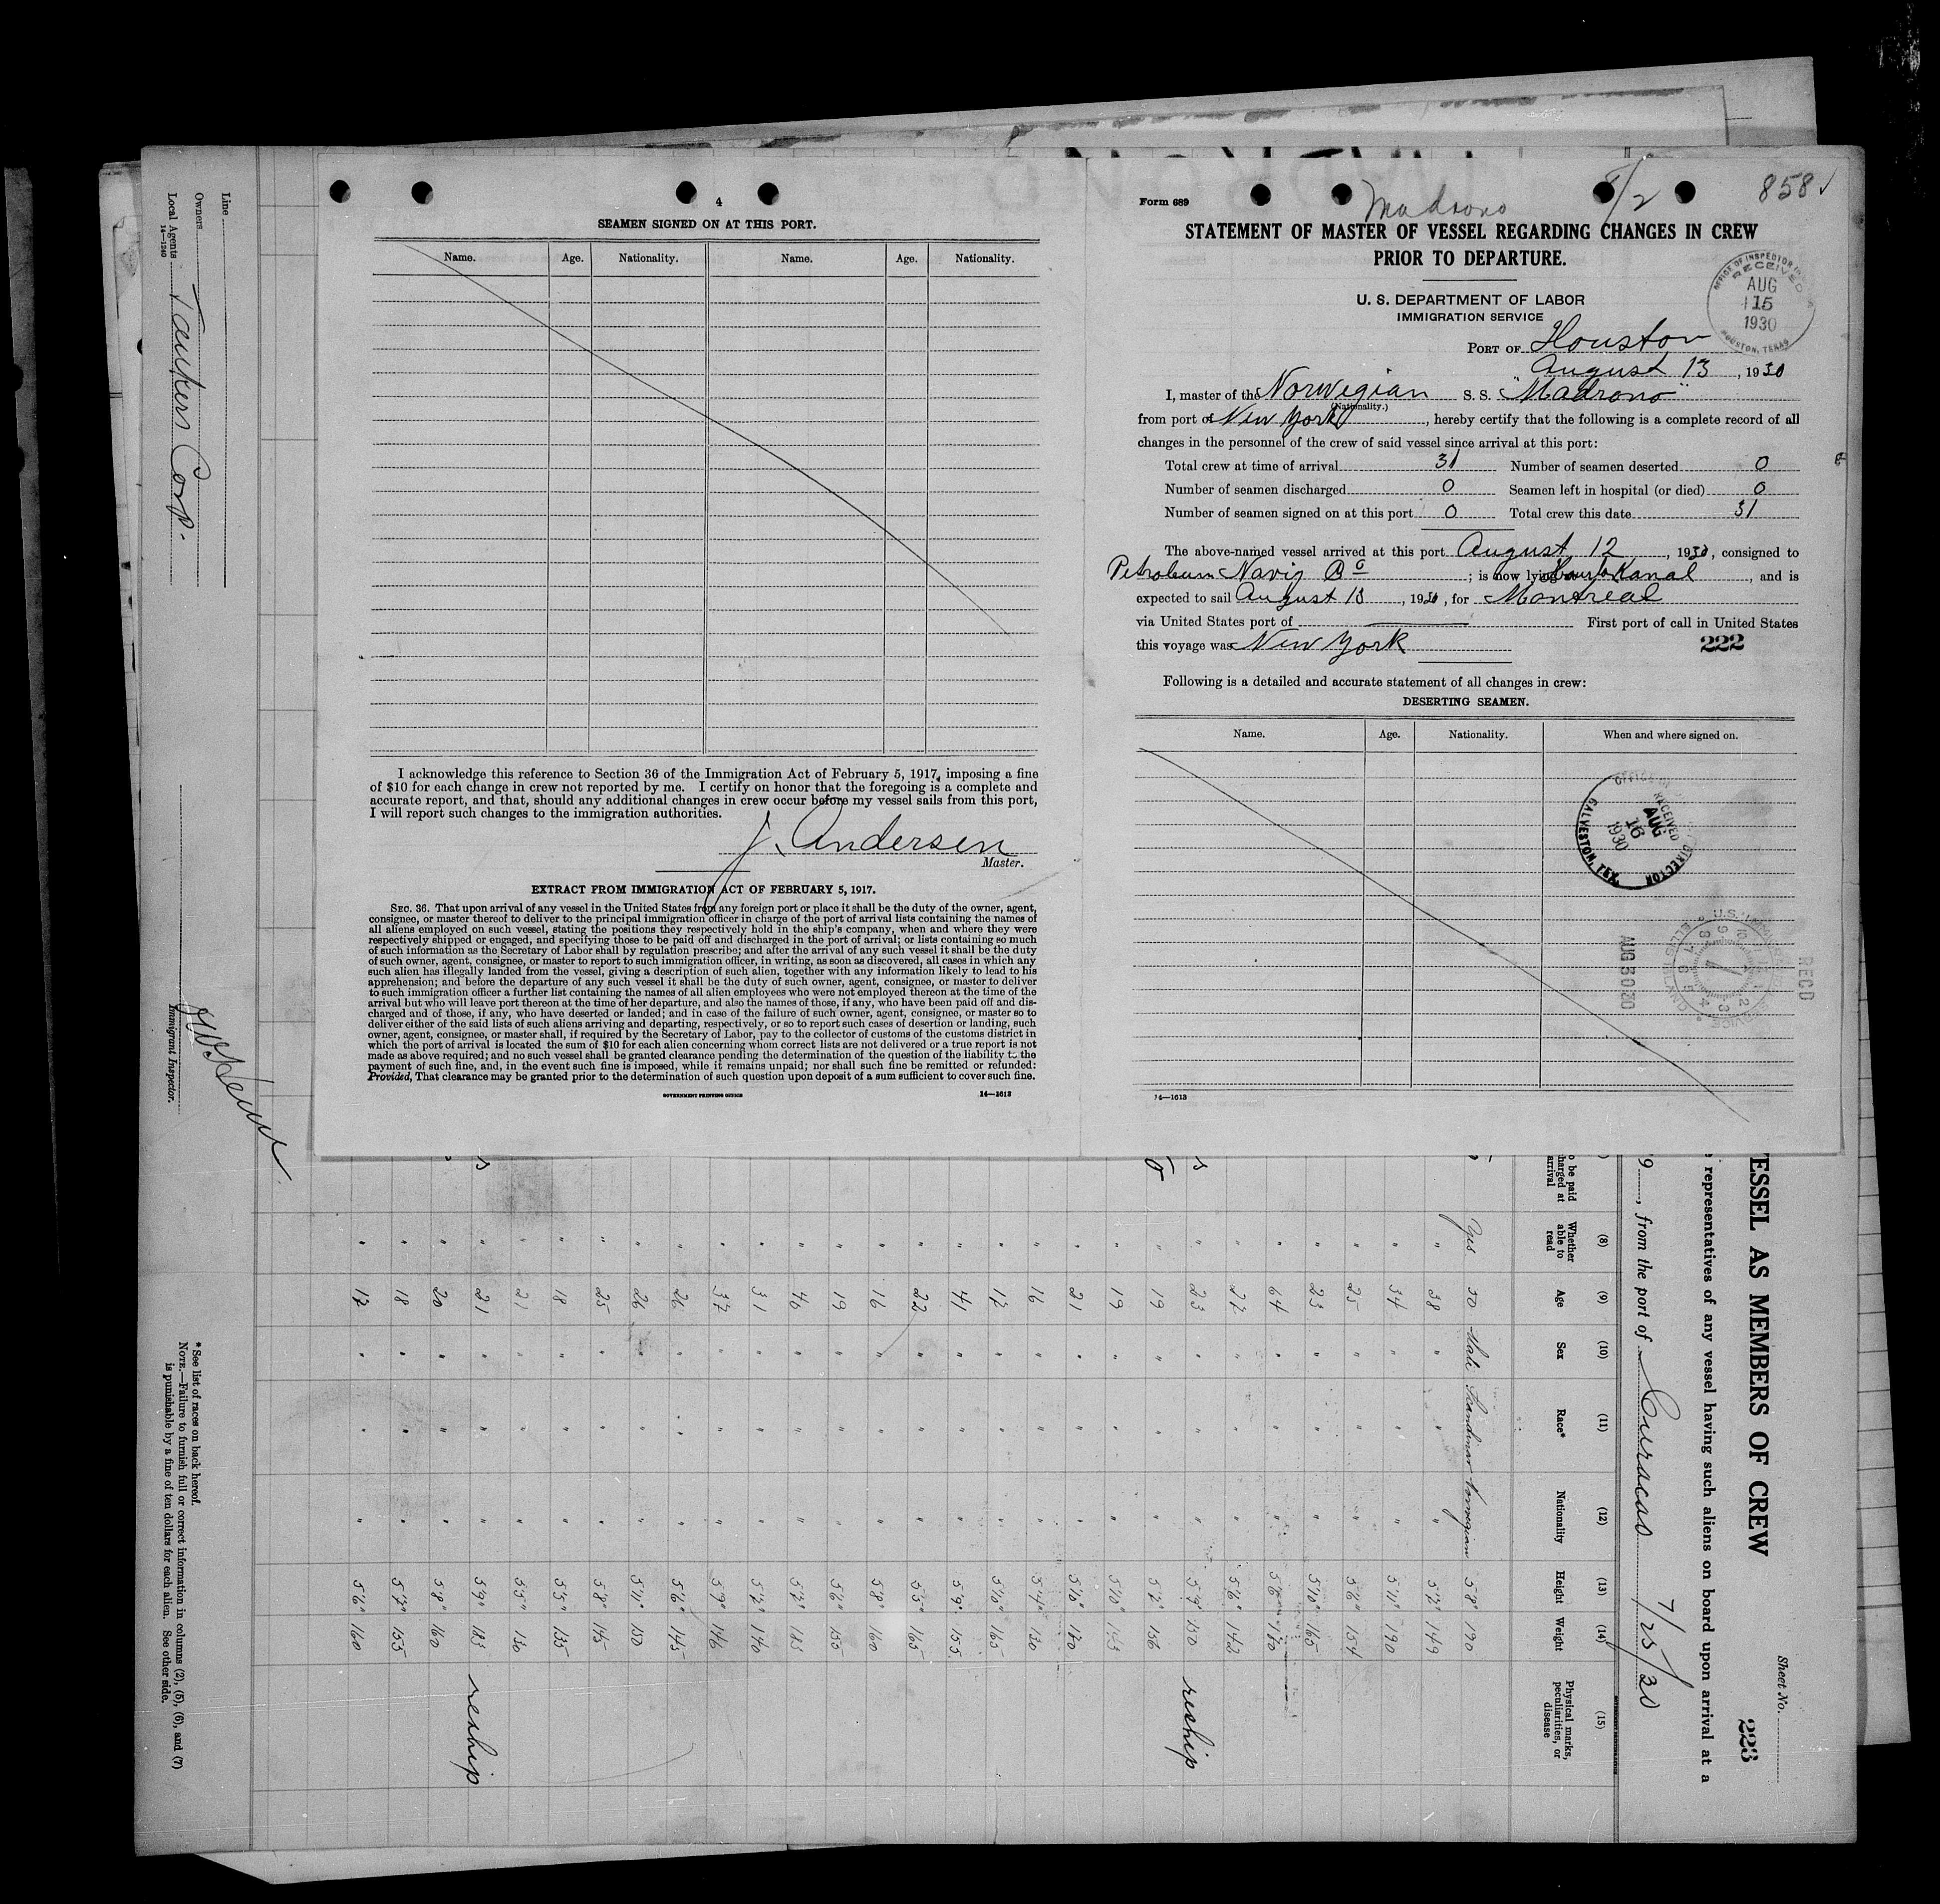 4
SEAMEN SIGNED ON AT THIS PORT.
Name. Age. Nationality. Name. Age. Nationality.
I acknowledge this reference to Section 36 of the Immigration Act of February 5, 1917, imposing a fine
of $10 for each change in crew not reported by me. I certify on honor that the foregoing is a complete and
accurate report, and that, should any additional changes in crew occur before my vessel sails from this port,
I will report such changes to the immigration authorities.
J. Andersen
Master.
EXTRACT FROM IMMIGRATION ACT OF FEBRUARY 5, 1917.
SEC. 36. That upon arrival of any vessel in the United States from any foreign port or place it shall be the duty of the owner, agent,
consignee, or master thereof to deliver to the principal immigration officer in charge of the port of arrival lists containing the names of
all aliens employed on such vessel, stating the positions they respectively hold in the ship's company, when and where they were
respectively shipped or engaged, and specifying those to be paid off and discharged in the port of arrival; or lists containing so much
of such information as the Secretary of Labor shall by regulation prescribe; and after the arrival of any such vessel it shall be the duty
of such owner, agent, consignee, or master to report to such immigration officer, in writing, as soon as discovered, all cases in which any
such alien has illegally landed from the vessel, giving a description of such alien, together with any information likely to lead to his
apprehension; and before the departure of any such vessel it shall be the duty of such owner, agent, consignee, or master to deliver
to such immigration officer a further list containing the names of all alien employees who were not employed thereon at the time of the
arrival but who will leave port thereon at the time of her departure, and also the names of those, if any, who have been paid off and dis-
charged and of those, if any, who have deserted or landed; and in case of the failure of such owner, agent, consignee, or master so to
deliver either of the said lists of such aliens arriving and departing, respectively, or so to report such cases of desertion or landing, such
owner, agent, consignee, or master shall, if required by the Secretary of Labor, pay to the collector of customs of the customs district in
which the port of arrival is located the sum of $10 for each alien concerning whom correct lists are not delivered or a true report is not
made as above required; and no such vessel shall be granted clearance pending the determination of the question of the liability to the
payment of such fine, and, in the event such fine is imposed, while it remains unpaid; nor shall such fine be remitted or refunded:
Provided, That clearance may be granted prior to the determination of such question upon deposit of a sum sufficient to cover such fine.
GOVERNMENT PRINTING OFFICE 14—1613
Form 689 Madrono 8/2 858
STATEMENT OF MASTER OF VESSEL REGARDING CHANGES IN CREW
PRIOR TO DEPARTURE.
U. S. DEPARTMENT OF LABOR
IMMIGRATION SERVICE
RECEIVED
AUG
15
1930
HOUSTON, TEXAS
PORT OF Houston
August 13, 1930
I, master of the Norwegian S. S. "Madrono"
(Nationality.)
from port of New York, hereby certify that the following is a complete record of all
changes in the personnel of the crew of said vessel since arrival at this port:
Total crew at time of arrival 31 Number of seamen deserted 0
Number of seamen discharged 0 Seamen left in hospital (or died) 0
Number of seamen signed on at this port 0 Total crew this date 31
The above-named vessel arrived at this port August 12, 1930, consigned to
Petroleum Navig Co; is now lying Kanal, and is
expected to sail August 13, 1930, for Montreal
via United States port of First port of call in United States
this voyage was New York
222
Following is a detailed and accurate statement of all changes in crew:
DESERTING SEAMEN.
Name. Age. Nationality. When and where signed on.
RECEIVED
AUG
16
1930
DIRECTOR
GALVESTON, TEX.
RECD
AUG 30 30
14—1613
Line
Owners
Local Agents Tankers Corp.
14—1240
Immigrant Inspector.
* See list of races on back hereof.
NOTE.—Failure to furnish full or correct information in columns (2), (5), (6), and (7)
is punishable by a fine of ten dollars for each alien. See other side.
Sheet No.
223
ESSEL AS MEMBERS OF CREW
representatives of any vessel having such aliens on board upon arrival at a
9, from the port of Curacao 7/25/30
(8) (9) (10) (11) (12) (13) (14) (15)
Whether able to read Age Sex Race* Nationality Height Weight Physical marks, peculiarities, or disease
Yes 50 Male Scandinav Norwegian 5'8" 190
" 38 " " " 5'7" 149
" 34 " " " 5'11" 190
" 25 " " " 5'6" 154
" 23 " " " 5'10" 165
" 64 " " " 5'6"
" 22 " " " 5'6" 142
" 23 " " " 5'9" 150 reship
" 19 " " " 5'7" 156
" 19 " " " 5'10"
" 21 " " " 5'10" 170
" 16 " " " 5'4" 130
" 17 " " " 5'10" 165
" 41 " " " 5'9" 155
" 22 " " " 5'5" 165
" 16 " " " 5'8" 160
" 19 " " " 5'6" 155
" 46 " " " 5'7" 185
" 31 " " " 5'7" 140
" 37 " " " 5'9" 146
" 26 " " " 5'6" 145
" 26 " " " 5'11" 150
" 25 " " " 5'8" 145
" 18 " " " 5'5" 135
" 21 " " " 5'5" 130
" 21 " " " 5'9" 185 reship
" 20 " " " 5'8" 160
" 18 " " " 5'7" 155
" 17 " " " 5'6" 160